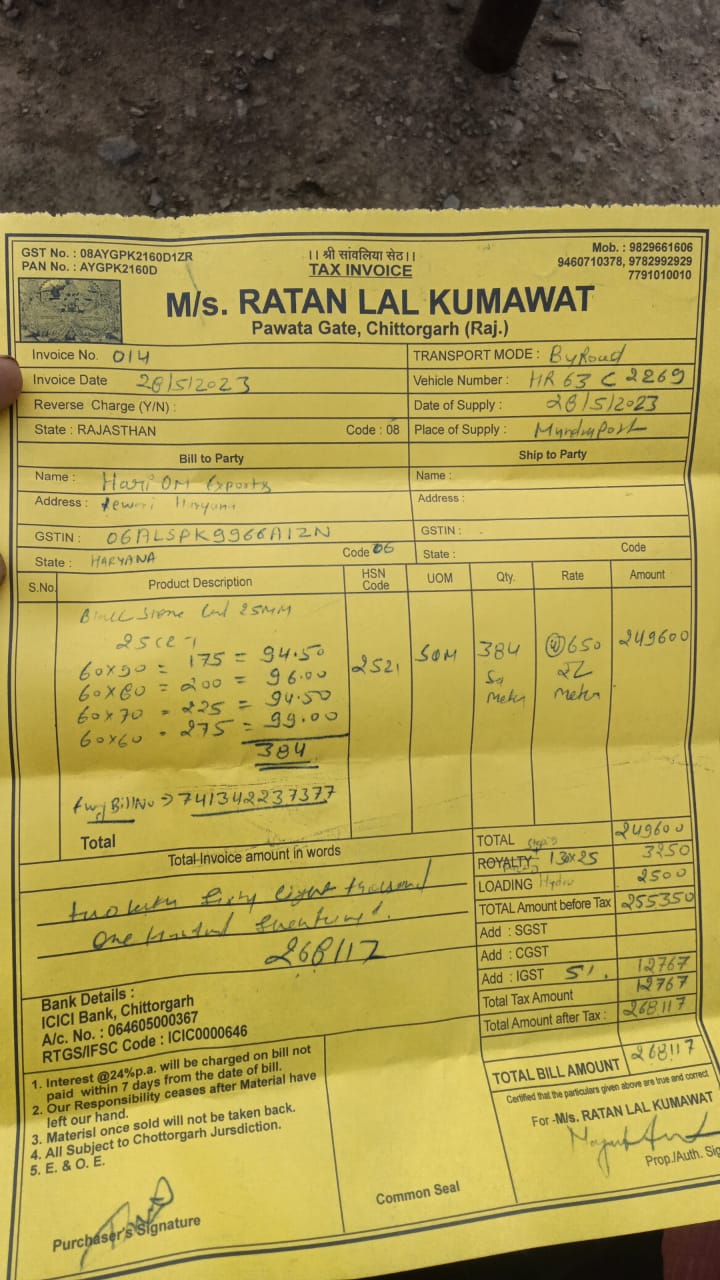 GST No. : 08AYGPK2160D1ZR
PAN No. : AYGPK2160D
।। श्री सांवलिया सेठ।।
TAX INVOICE
Mob. : 9829661606
9460710378, 9782992929
7791010010
M/s. RATAN LAL KUMAWAT
Pawata Gate, Chittorgarh (Raj.)
Invoice No. 014
TRANSPORT MODE : By Road
Invoice Date 28/5/2023
Vehicle Number : HR 63 C 2269
Reverse Charge (Y/N) :
Date of Supply : 28/5/2023
State : RAJASTHAN Code : 08
Place of Supply : Mundra Port
Bill to Party
Ship to Party
Name : Hari OM Exports
Name :
Address : Rewari Haryana
Address :
GSTIN : 06ALSPK9966A1ZN
GSTIN :
State : HARYANA Code 06
State : Code
S.No. Product Description HSN Code UOM Qty. Rate Amount
Black Stone 25MM
60x90 = 175 = 94.50
60x80 = 200 = 96.00
60x70 = 225 = 94.50
60x60 = 275 = 99.00
384
2521 SQM 384 Sq Meter 650 Meter 249600
Bill No → 741342237377
Total
TOTAL 249600
Total Invoice amount in words
ROYALTY 130x25 3250
LOADING Hydra 2500
two lakh Sixty eight thousand
TOTAL Amount before Tax 255350
One Hundred Seventeen
Add : SGST
268117
Add : CGST
Add : IGST 5%. 12767
Total Tax Amount 12767
Total Amount after Tax : 268117
Bank Details :
ICICI Bank, Chittorgarh
A/c. No. : 064605000367
RTGS/IFSC Code : ICIC0000646
TOTAL BILL AMOUNT 268117
1. Interest @24%p.a. will be charged on bill not
paid within 7 days from the date of bill.
2. Our Responsibility ceases after Material have
left our hand.
3. Materisl once sold will not be taken back.
4. All Subject to Chottorgarh Jursdiction.
5. E. & O. E.
Certified that the particulars given above are true and correct
For -M/s. RATAN LAL KUMAWAT
Prop./Auth. Sig
Common Seal
Purchaser's Signature